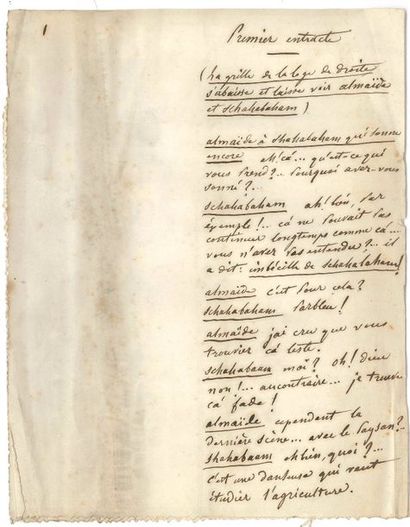 1
Premier entracte
(La grille de la loge de droite
s'abaisse et laisse voir almaïde
et Schahabaham)
almaïde à Shahabaham qui sonne
encore ah! çà... qu'est-ce qui
vous prend?.. pourquoi avez-vous
sonné?..
Schahabaham ah! bon, par
exemple!.. çà ne pouvait pas
continuer longtemps comme çà...
vous n'avez pas entendu?.. il
a dit: imbécille de Schahabaham!
almaïde c'est pour cela?
Schahabaham parbleu!
almaïde j'ai cru que vous
trouviez çà leste.
Schahabaam moi? oh! dieu
non!... aucontraire... je trouve
çà fade!
almaïde cependant la
dernière scène... avec le paysan?..
Shahabaam eh bien, quoi?...
c'est une danseuse qui veut
étudier l'agriculture.